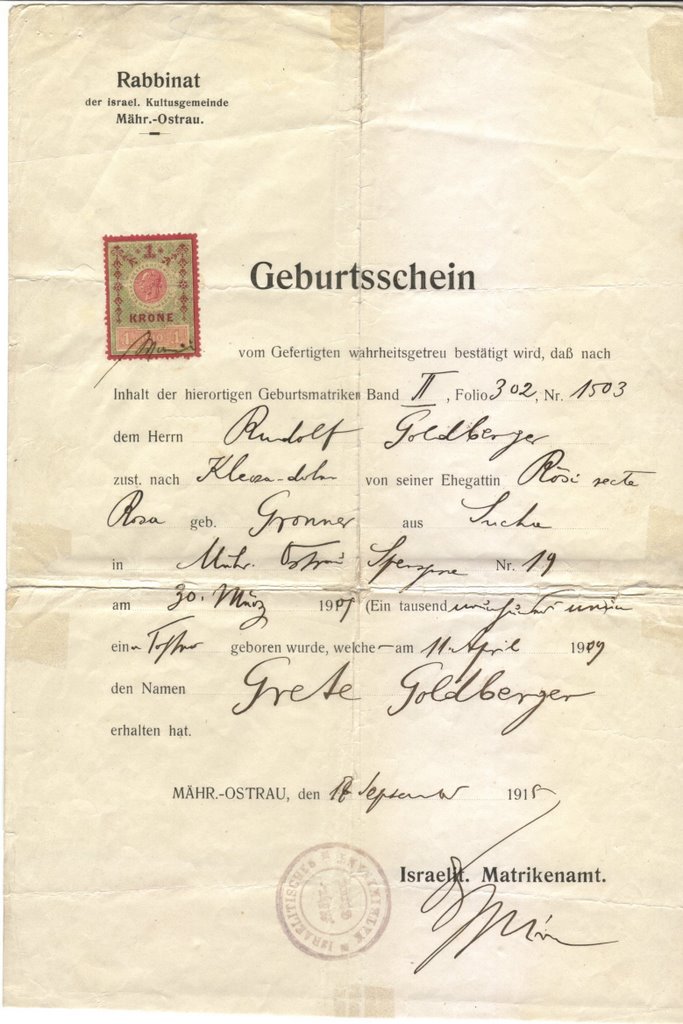 Rabbinat
der israel. Kultusgemeinde
Mähr.-Ostrau.
1
KRONE
1 1
Geburtsschein
vom Gefertigten wahrheitsgetreu bestätigt wird, daß nach
Inhalt der hierortigen Geburtsmatriken Band II, Folio 302, Nr. 1503
dem Herrn Rudolf Goldberger
zust. nach von seiner Ehegattin Rösi recte
Rosa geb. Gronner aus Sucha
in Mähr. Ostrau Nr. 19
am 30. März 1909 (Ein tausend
eine Tochter geboren wurde, welche am 11. April 1909
den Namen Grete Goldberger
erhalten hat.
MÄHR.-OSTRAU, den September 1915
Israelit. Matrikenamt.
ISRAELITISCHES MATRIKENAMT